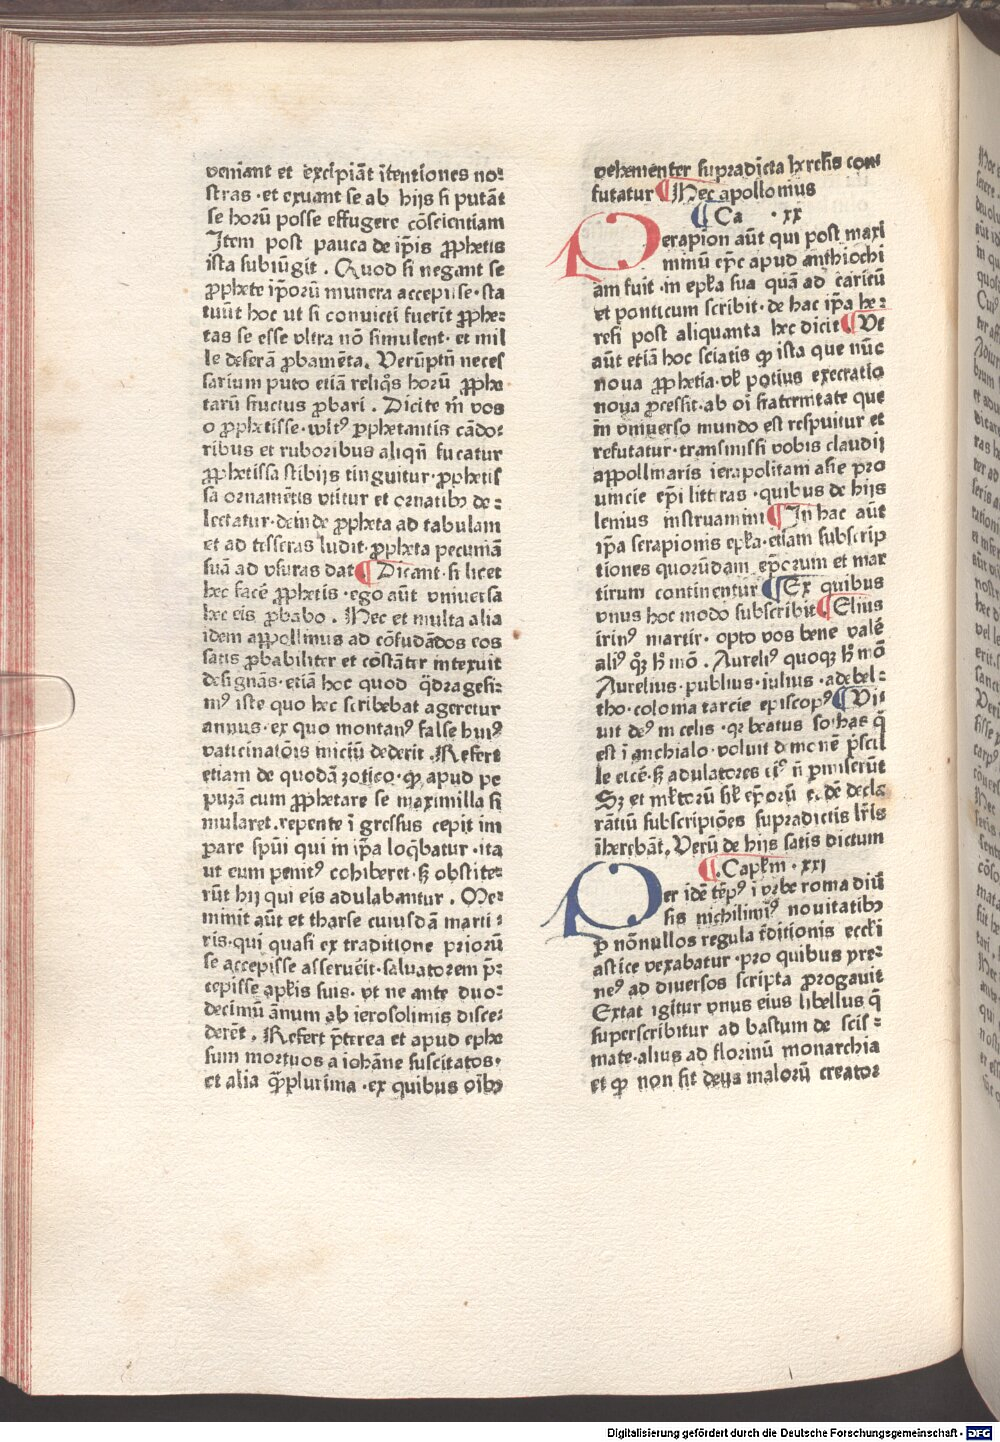 veniant et excipiāt ītentiones no⸗
stras · et exuant se ab hijs si putāt
se horū posse effugere cōscientiam
Item post pauca de ip̄is ꝓphetis
ista subiūgit . Quod si negant se
ꝓphete ip̄orū munera accepisse · sta
tuūt hoc ut si convicti fuerīt ꝓphe⸗
tas se esse vltra nō simulent · et mil
le deferā ꝓbamēta . Verūptn̄ neces
sarium puto etiā reliqꝰs horū ꝓphe
tarū fructus ꝓbari . Dicite m̄ vos
o ꝓphetisse · vultꝰ ꝓphetantis cādo⸗
ribus et ruboribus aliqn̄ fucatur
ꝓphetissa stibijs tinguitur · ꝓphetis
sa ornamētis vtitur et ornatibꝫ de⸗
lectatur · deinde ꝓpheta ad tabulam
et ad tesseras ludit · ꝓpheta pecuniā
suā ad vsuras dat Dicant · si licet
hec facē ꝓphetis · ego aūt vniuersa
hec eis ꝓbabo . Hec et multa alia
idem appollinus ad cōfudādos eos
satis ꝓbabiliter et cōstāter intexuit
designās · etiā hoc quod q̄dragesi⸗
mꝰ iste quo hec scribebat ageretur
annus · ex quo montanꝰ false huiꝰ
vaticinatōis iniciū dederit . Refert
etiam de quodā zotico · ꝙ apud pe
puzā cum ꝓphetare se maximilla si
mularet · repente ī gressus cepit im
ꝑare spūi qui in ip̄a loq̄batur · ita
ut eum penitꝰ cohiberet · sꝫ obstite⸗
rūt hij qui eis adulabantur . Me⸗
minit aūt et tharse cuiusdā marti⸗
ris · qui quasi ex traditione priorū
se accepisse asserueīt · saluatorem p̄⸗
cepisse ap̄lis suis · vt ne ante duo⸗
decimū ānum ab ierosolimis disce⸗
derēt . Refert p̄terea et apud ephe
sum mortuos a iohāne suscitatos ·
et alia q̄ꝑplurima · ex quibus oībꝫ
vehementer supradicta heresis con⸗
futatur Hec apollonius
Ca · xx
Serapion aūt qui post maxi
minū ep̄c apud anthiochi
am fuit · in ep̄la sua quā ad caricū
et ponticum scribit · de hac ip̄a he⸗
resi post aliquanta hec dicit Ve
aūt etiā hoc sciatis ꝙ ista que nūc
noua ꝓphetia · vl̄ potius execratio
noua ꝓcessit · ab oī fraternitate que
in vniuerso mundo est respuitur et
refutatur · transmissi vobis claudij
appollinaris ierapolitani asie pro
uincie ep̄i litteras · quibus de hijs
lenius instruamini In hac aūt
ip̄a serapionis ep̄la · etiam subscrip
tiones quorūdam ep̄corum et mar
tirum continentur Ex quibus
vnus hoc modo subscribit Elius
irinꝰ martir · opto vos bene valē
aliꝰ qꝫ h̄ mō . Aureliꝰ quoqꝫ h̄ mō
Aurelius · publius · iulius · adebel⸗
tho · colonia tarcie episcopꝰ Vi⸗
uit deꝰ in celis · qꝛ beatus sothas q̄
est ī anchialo · voluit demonē p̄scil
le eicē · sꝫ adulatores eiꝰ n̄ ꝑmiserūt
Sꝫ et ml̄torū sil̄ ep̄orū eidē decla
rātiū subscripiōes supradictis lr̄is
īherebāt . Verū de hijs satis dictum
Capl̄m · xxi
Per idē tēpꝰ ī vrbe roma diū
sis nichilimiꝰ nouitatibꝫ
ꝑ nōnullos regula t̄ditionis eccl̄i
astice vexabatur · pro quibus yre⸗
neꝰ ad diuersos scripta ꝓrogauit
Extat igitur vnus eius libellus q̄
superscribitur ad bastum de scis⸗
mate · alius ad florinū monarchia
et ꝙ non sit deus malorū creator
Digitalisierung gefördert durch die Deutsche Forschungsgemeinschaft - DFG